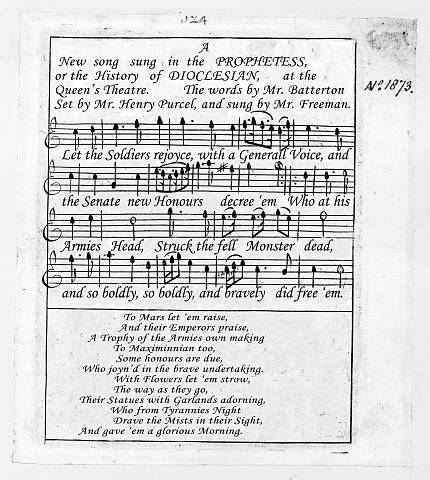 32A
A
New song sung in the PROPHETESS,
or the History of DIOCLESIAN, at the
Queen's Theatre. The words by Mr. Batterton
Set by Mr. Henry Purcel, and sung by Mr. Freeman.
No. 1873.
Let the Soldiers rejoyce, with a Generall Voice, and
the Senate new Honours decree 'em Who at his
Armies Head, Struck the fell Monster dead,
and so boldly, so boldly, and bravely did free 'em.
To Mars let 'em raise,
And their Emperors praise,
A Trophy of the Armies own making
To Maximinnian too,
Some honours are due,
Who joyn'd in the brave undertaking.
With Flowers let 'em strow,
The way as they go,
Their Statues with Garlands adorning,
Who from Tyrannies Night
Drave the Mists in their Sight,
And gave 'em a glorious Morning.